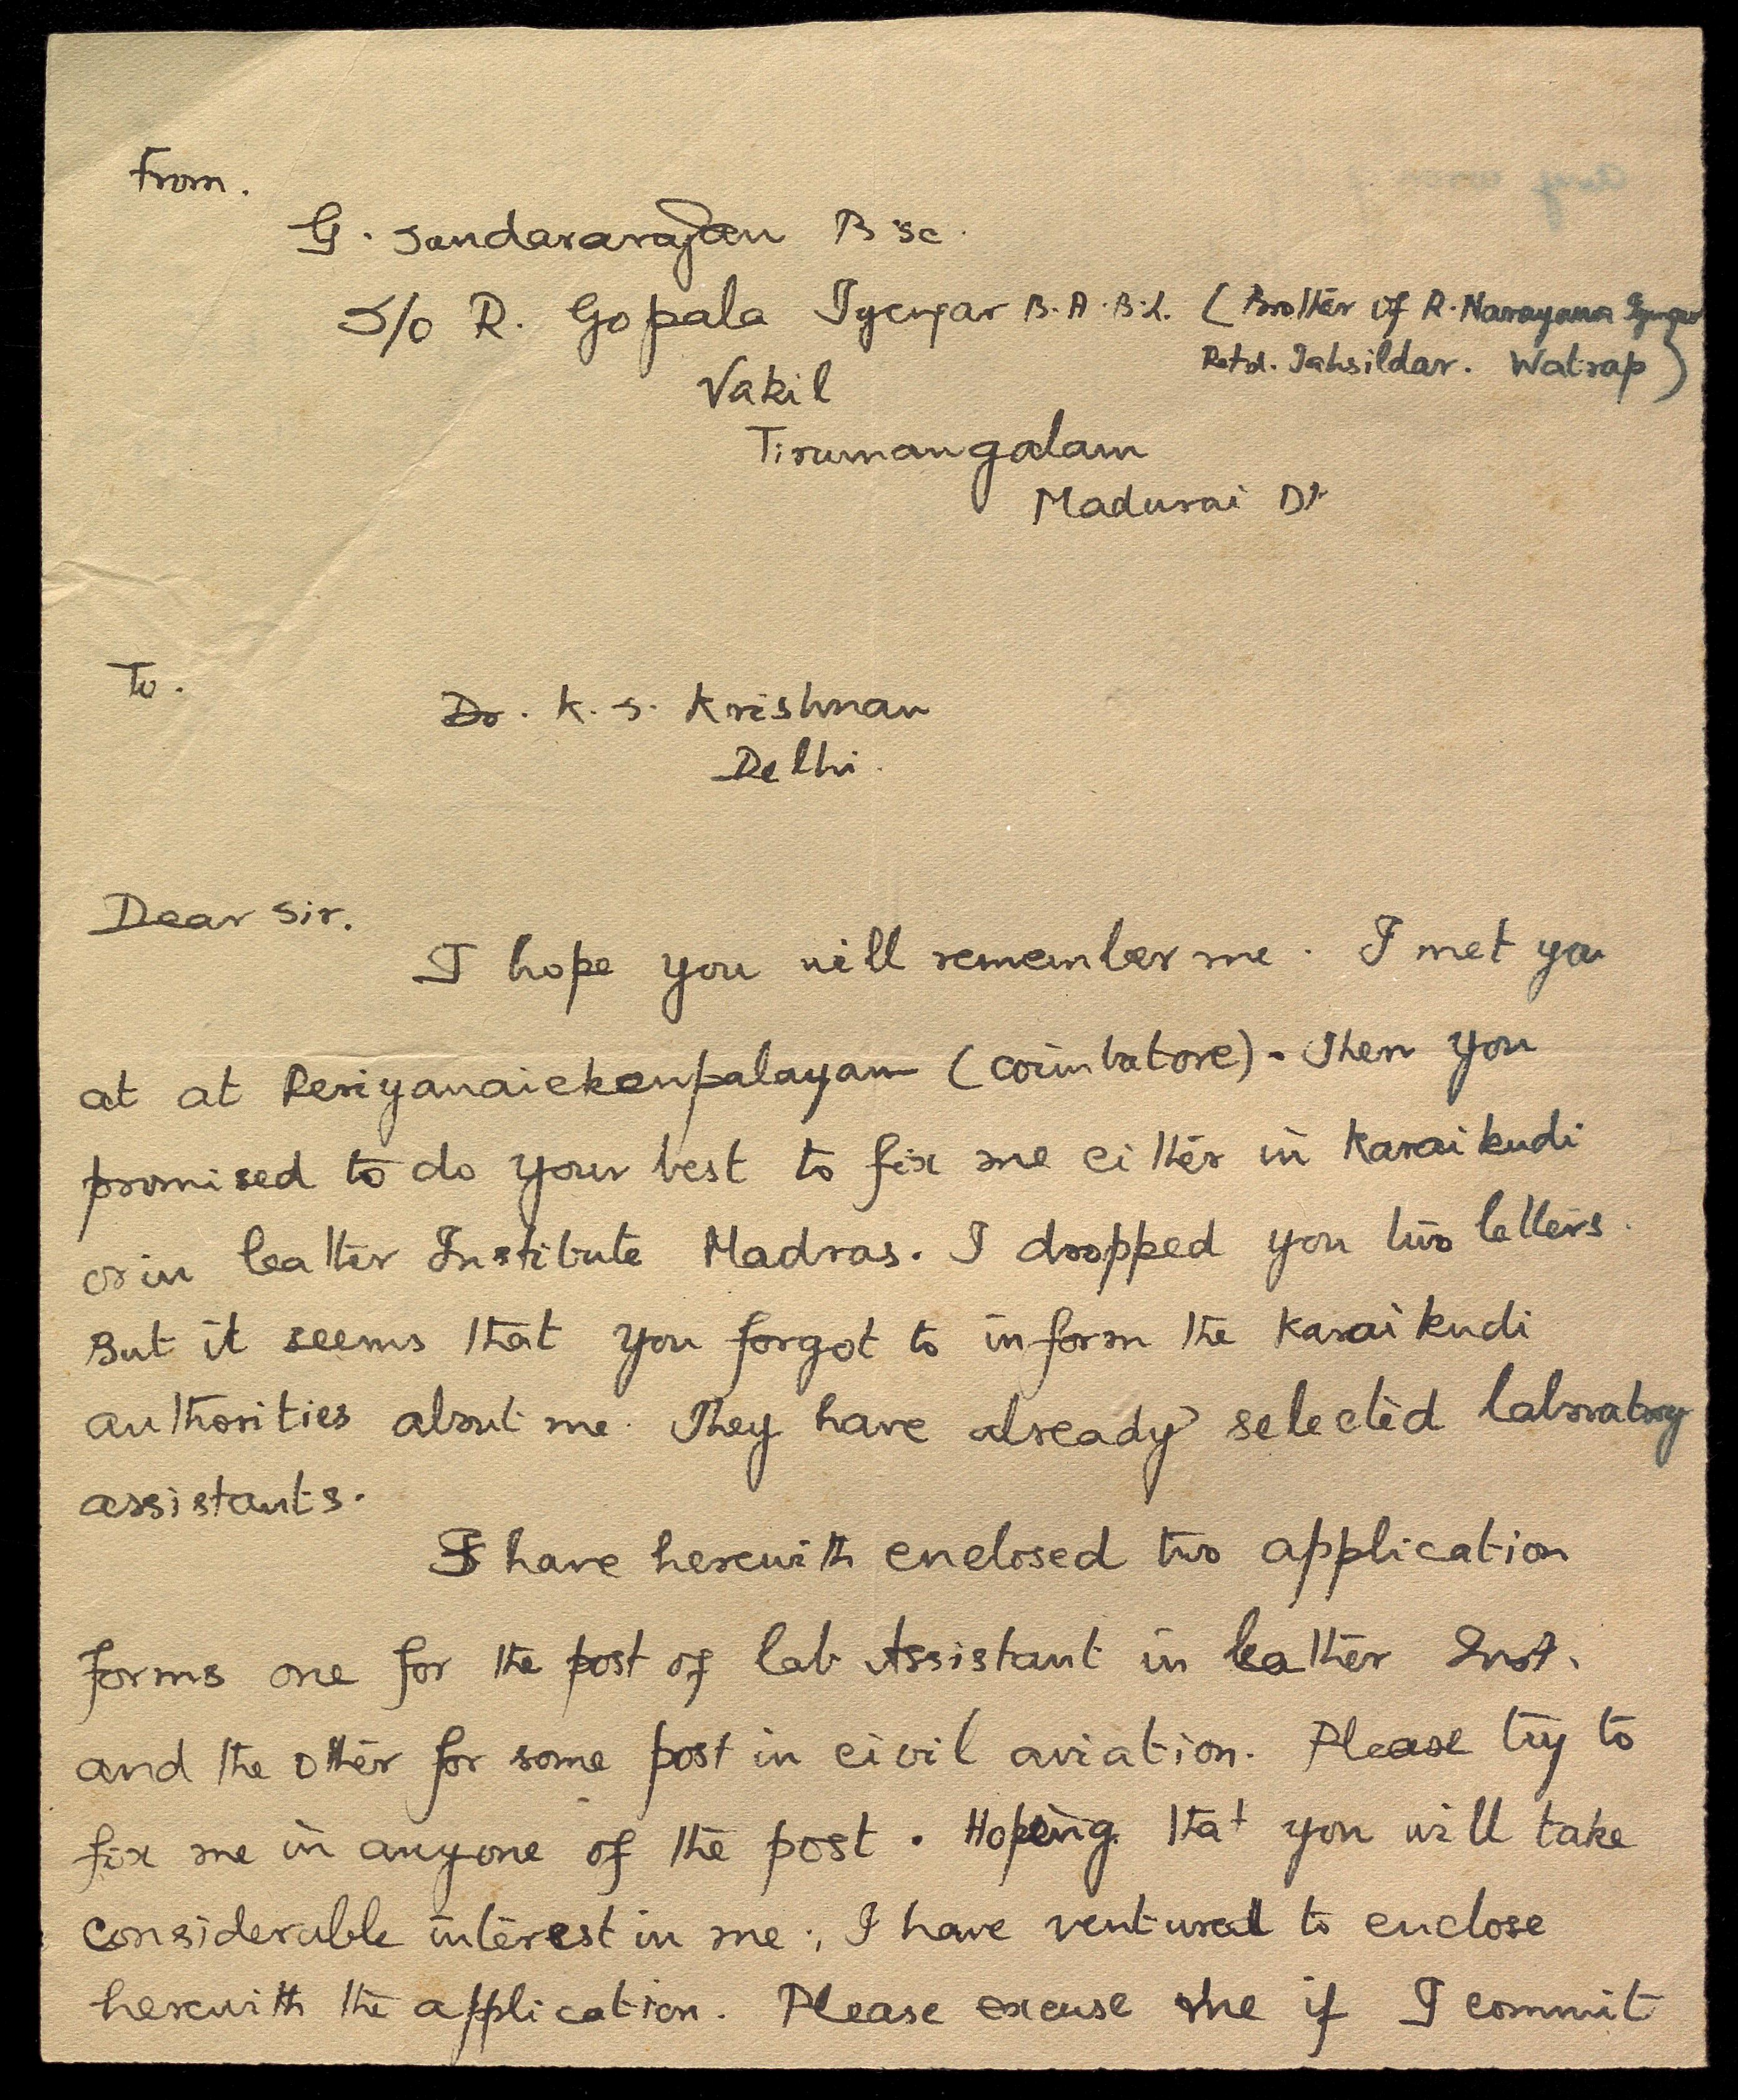 From.
G. Sundararajan B sc.
S/o R. Gopala Iyengar B.A.B.L. (Brother of R. Narayana Iyengar
Retd. Tahsildar. Watrap)
Vakil
Tirumangalam
Madurai Dt
To.
Dr. K. S. Krishnan
Delhi.
Dear Sir.
I hope you will remember me. I met you
at at Periyanaickenpalayam (Coimbatore). Then you
promised to do your best to fix me either in Karaikudi
or in leather Institute Madras. I dropped you two letters.
But it seems that you forgot to inform the Karaikudi
authorities about me. They have already selected laboratory
assistants.
I have herewith enclosed two application
forms one for the post of lab Assistant in leather Inst.
and the other for some post in civil aviation. Please try to
fix me in anyone of the post. Hoping that you will take
considerable interest in me, I have ventured to enclose
herewith the application. Please excuse me if I commit